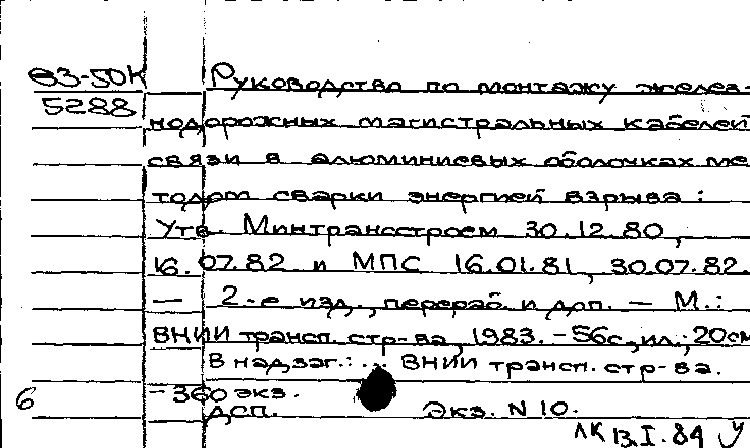 83-50К Руководство по монтажу желез-
5288
нодорожных магистральных кабелей
связи в алюминиевых оболочках ме
тодом сварки энергией взрыва :
Утв. Минтрансстроем 30.12.80,
16.07.82 и МПС 16.01.81, 30.07.82.
— 2-е изд., перераб. и доп. — М.:
ВНИИ трансп. стр-ва, 1983. - 56с., ил.; 20см
В надзаг.: ... ВНИИ трансп. стр-ва.
- 360 экз.
6 ДСП. Экз. N 10.
ЛК 13.I.84 У